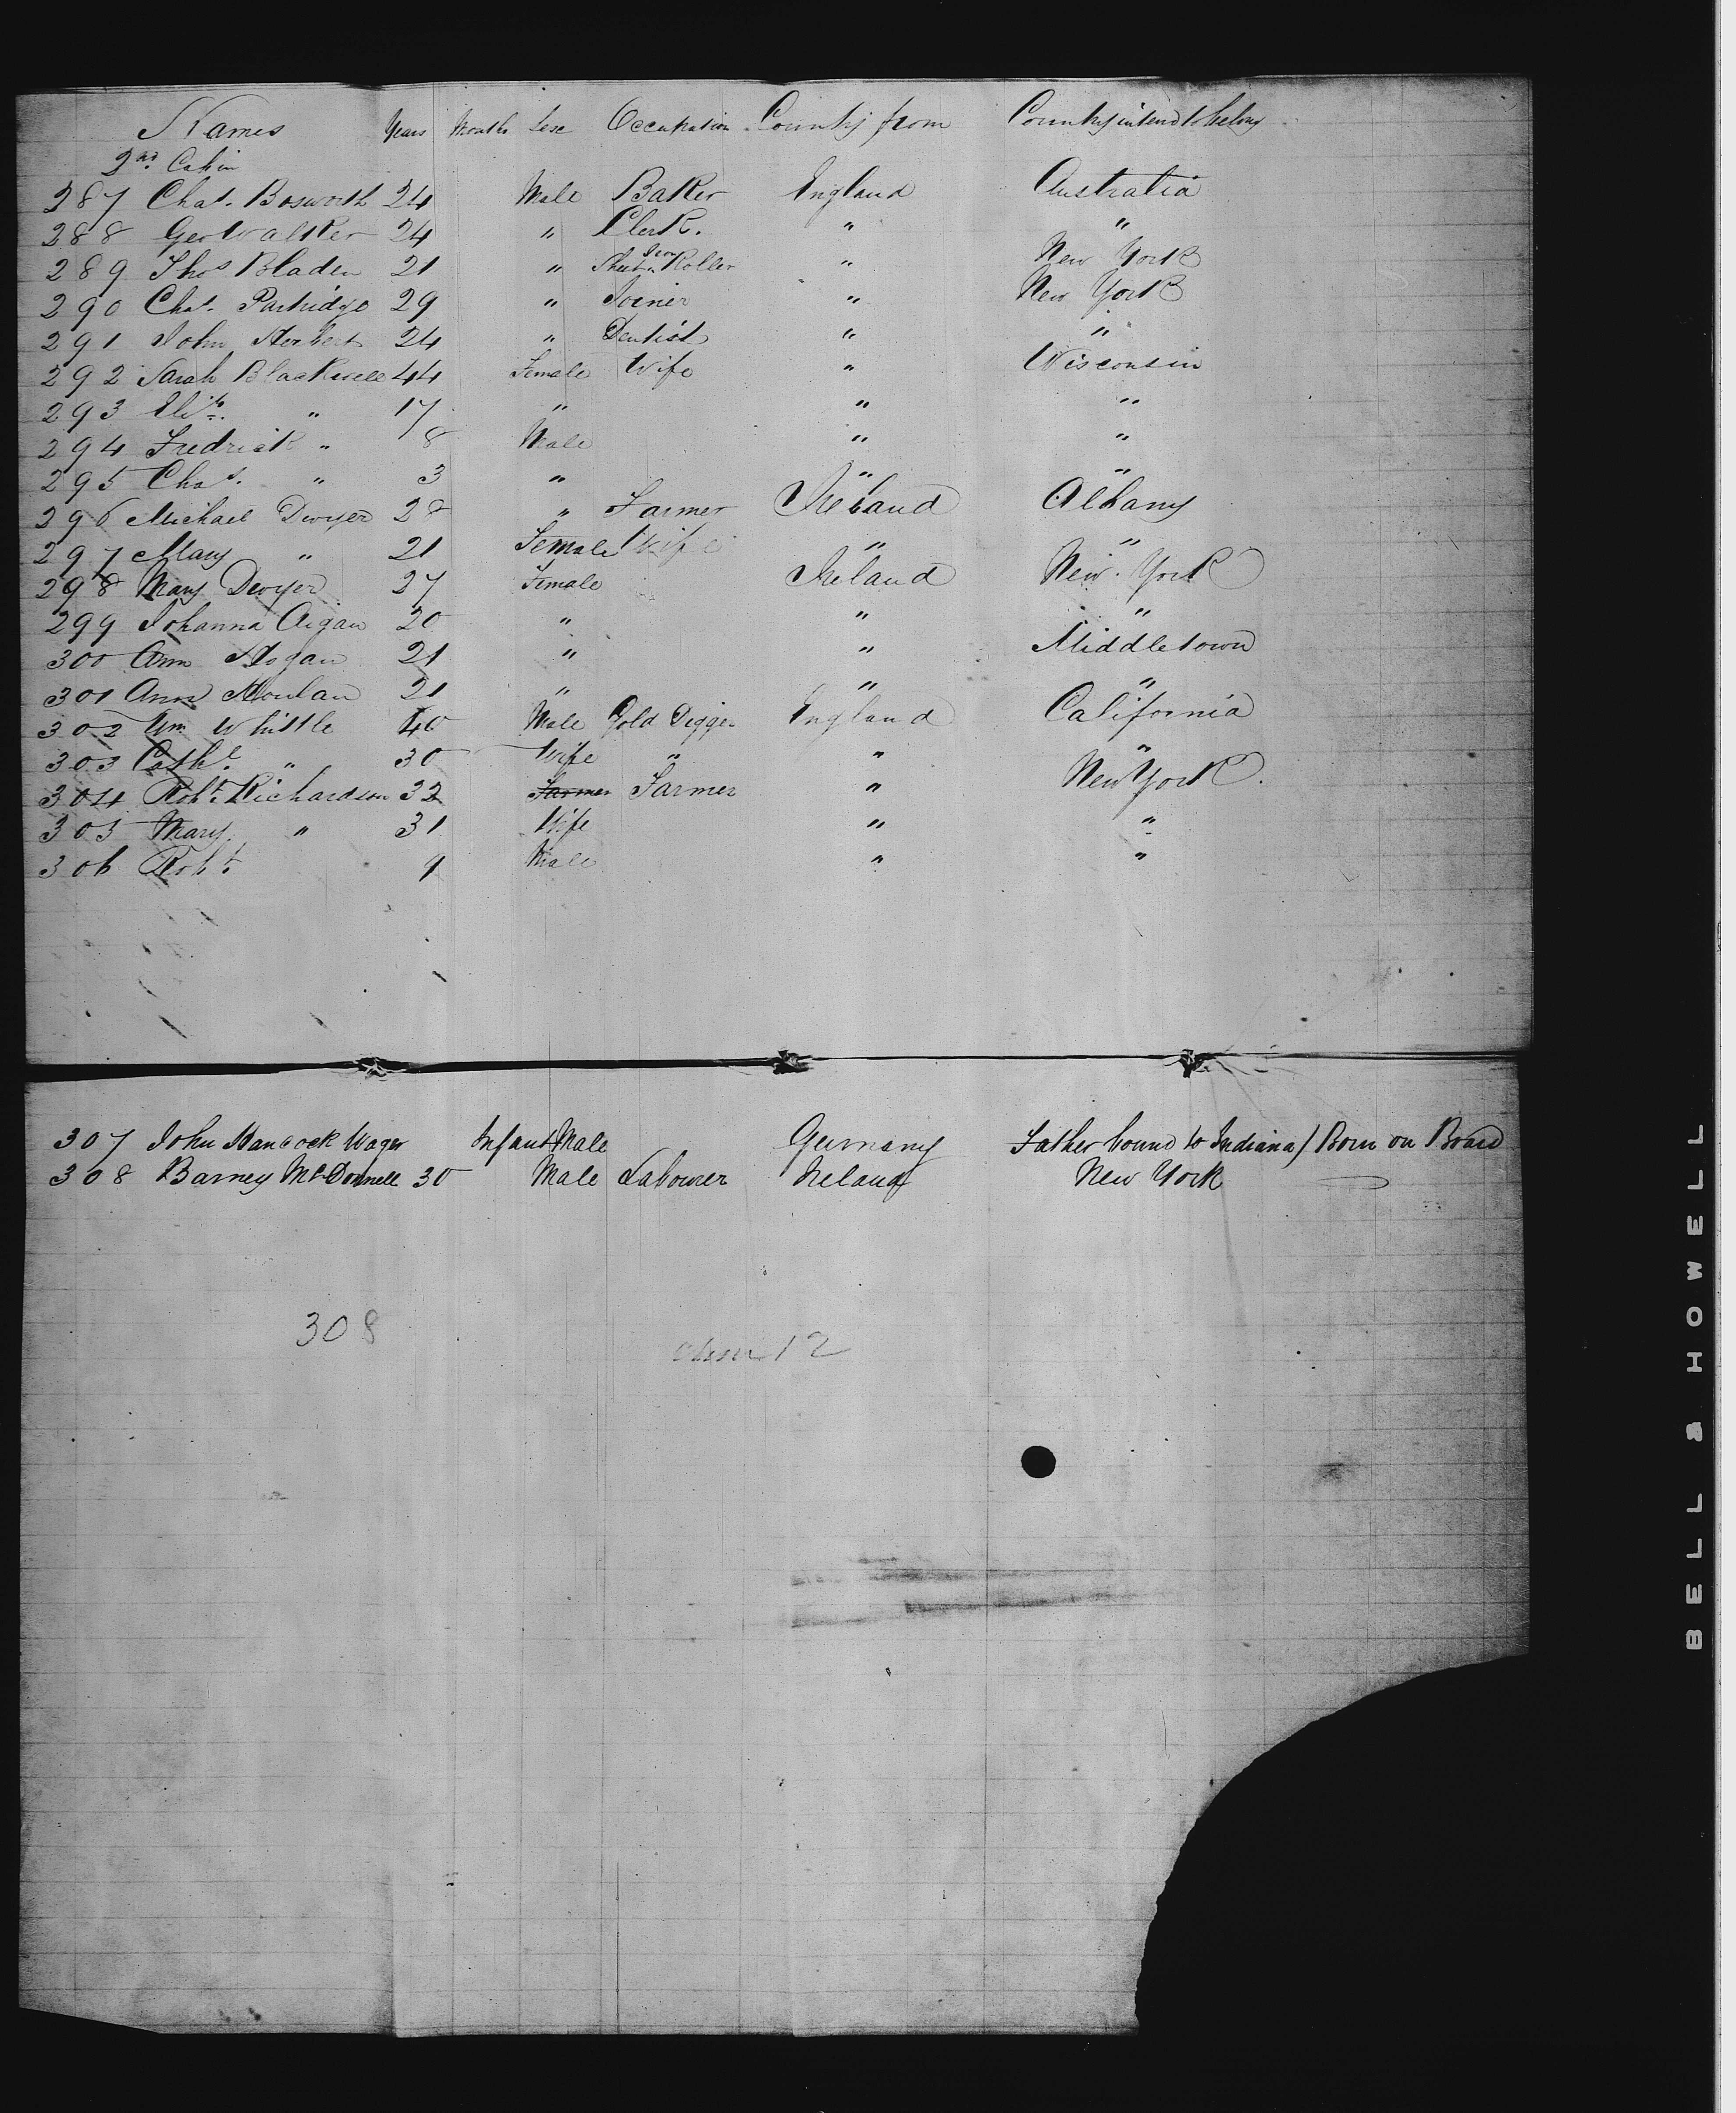 Names Years Months Sex Occupation County from Country intend to belong
2nd Cabin
287 Chas. Bosworth 24 Male Baker England Australia
288 Geo Walker 24 " Clerk. " "
289 Thos Bladen 21 " Sheet Iron Roller " New York
290 Chas. Partridge 29 " Joiner " New York
291 John Herbert 24 " Dentist " "
292 Sarah Blackwell 44 Female Wife " Wisconsin
293 Elizh. " 17 " " "
294 Fredrick " 8 Male " "
295 Chas. " 3 " " "
296 Michael Dwyer 28 " Farmer Ireland Albany
297 Mary " 21 Female Wife " "
298 Mary Dwyer 27 Female Ireland New York
299 Johanna 20 " " "
300 Ann Hogan 21 " " Middletown
301 Ann 21 " " "
302 Wm Whittle 40 Male Gold Digger England California
303 Cathe. " 30 Wife " " "
304 Robt. Richardson 32 Farmer Farmer " New York.
305 Mary. " 31 Wife " "
306 Robt. 9 Male " "
307 John Hancock Wager Infant Male Germany Father bound to Indiana) Born on Board
308 Barney McDonnell 30 Male Labourer Ireland New York
308
12
BELL & HOWELL